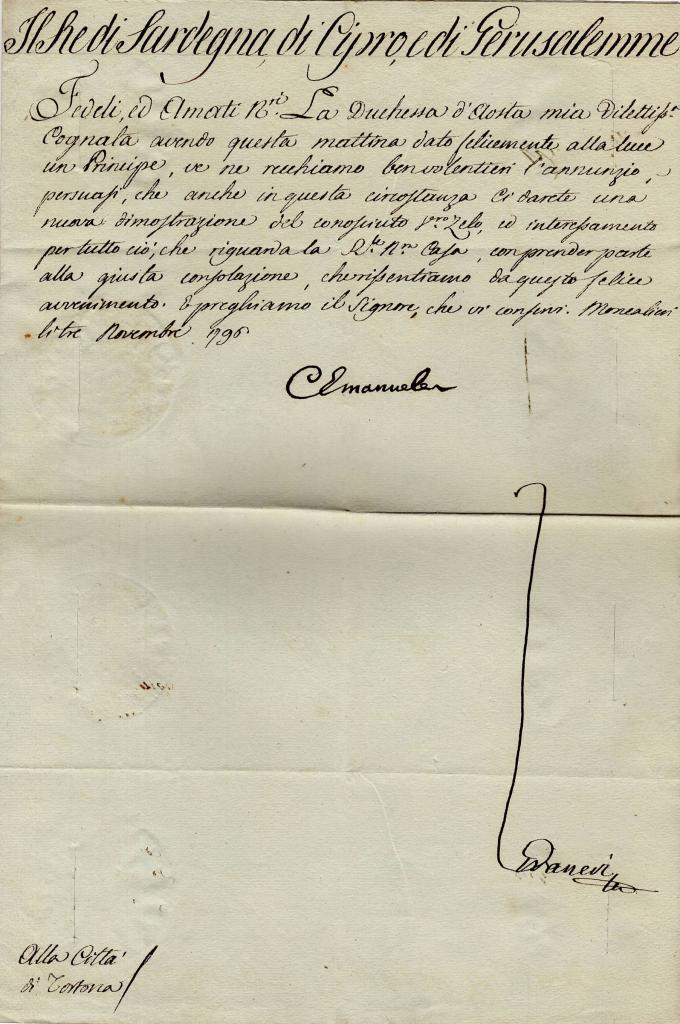 Il Re di Sardegna, di Cipro, e di Gerusalemme
Fedeli, ed Amati N.ri La Duchessa d'Aosta mia Dilettiss.a
Cognata avendo questa mattina dato felicemente alla luce
un Principe, ve ne rechiamo ben volentieri l'annunzio,
persuasi, che anche in questa circostanza Ci darete una
nuova dimostrazione del conosciuto v.ro Zelo, ed interessamento
per tutto ciò, che riguarda la N.ra Casa, con prender parte
alla giusta consolazione, che risentiamo da questo felice
avvenimento. E preghiamo il Signore, che vi conservi. Moncalieri
li tre Novembre 1796
C Emanuele
Alla Città
di Tortona